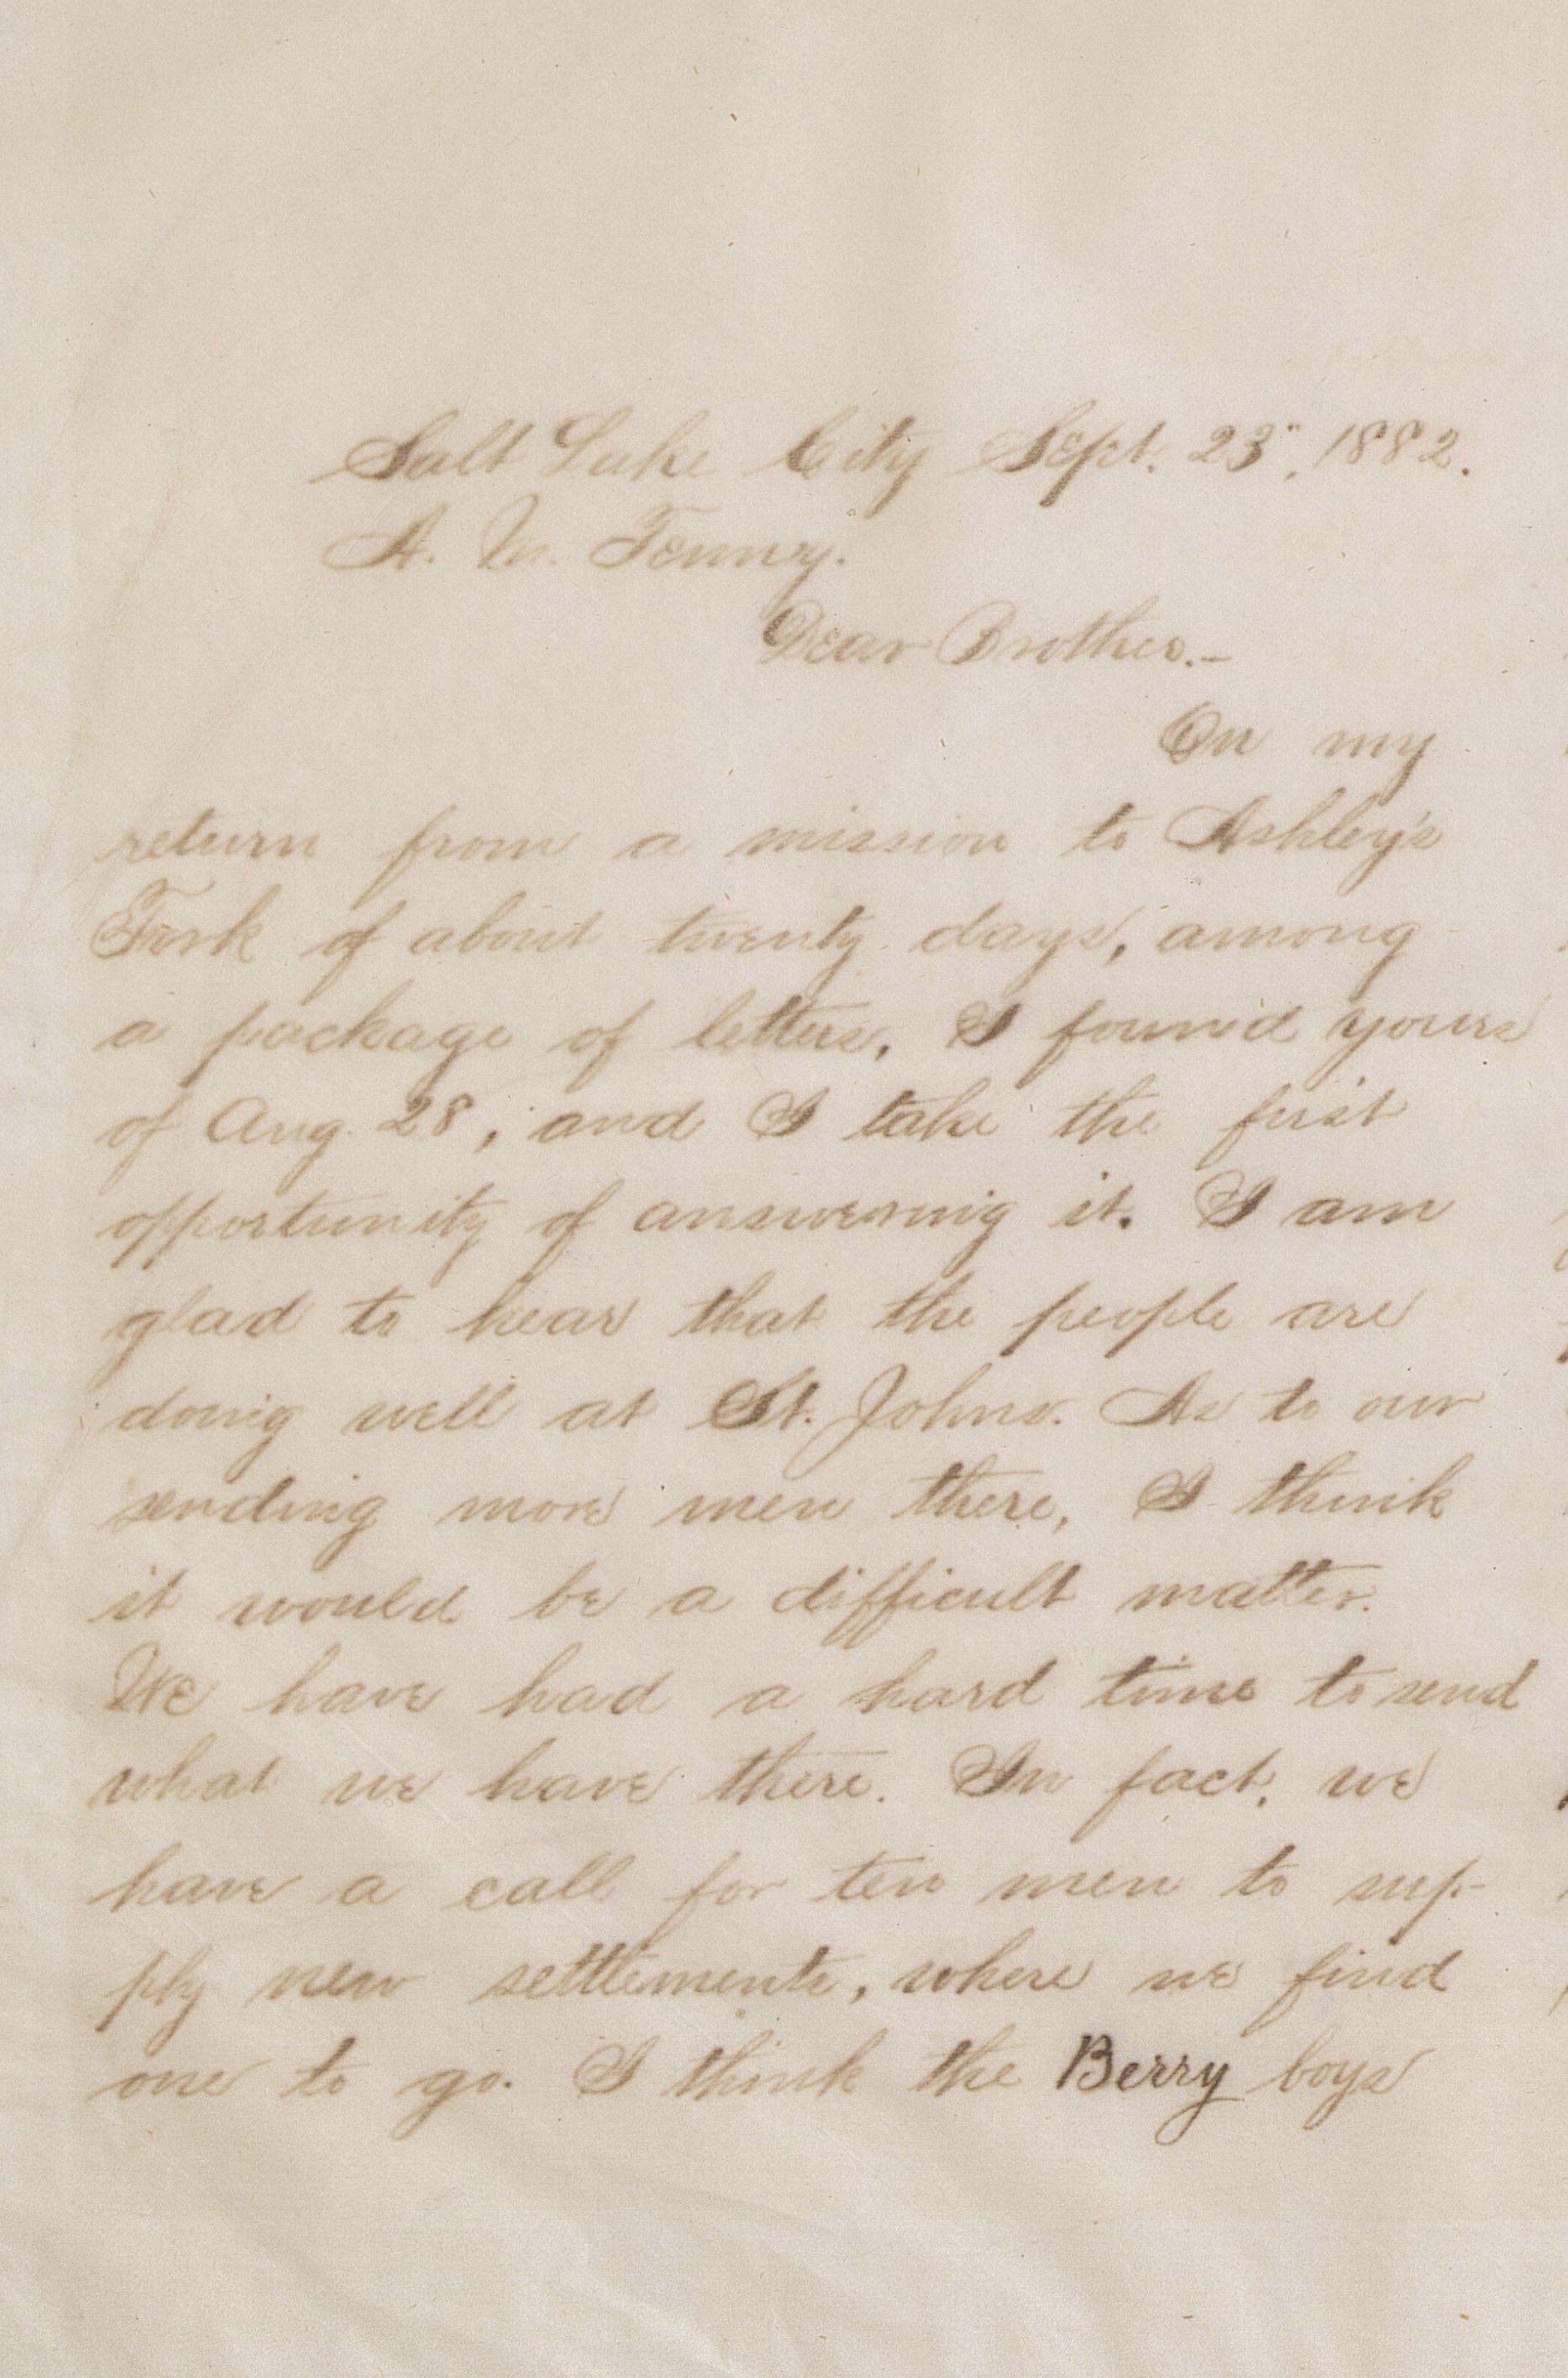 Salt Lake City Sept. 23", 1882.
A. M. Tenny.
Dear Brother.–
On my
return from a mission to Ashley's
Fork of about twenty days, among
a package of letters, I found yours
of Aug. 28, and I take the first
opportunity of answering it. I am
glad to hear that the people are
doing well at St. Johns. As to our
sending more men there, I think
it would be a difficult matter.
We have had a hard time to send
what we have there. In fact, we
have a call for ten men to sup-
ply new settlements, where we find
one to go. I think the Berry boys